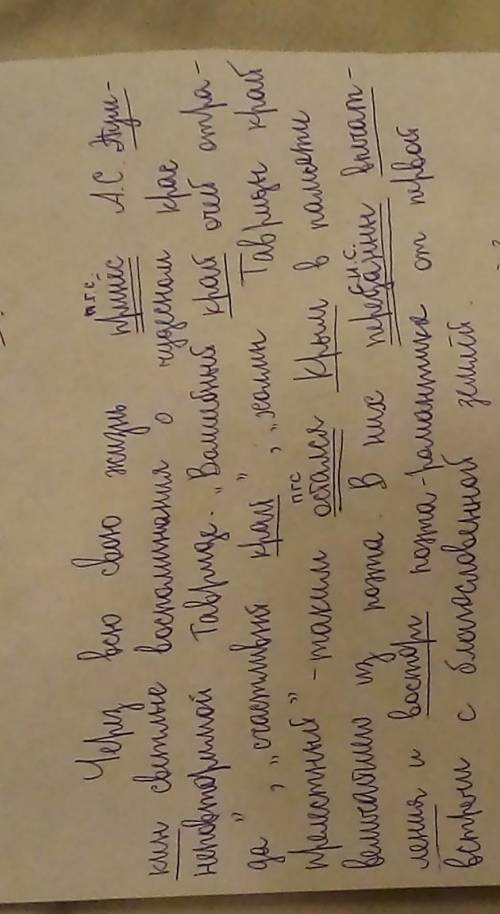 Через всю свою жизнь принес А.С. Пуш-
пгс
кин светлые воспоминания о чудесном крае
неповторимой Тавриде. „Валшебный край очей отра-
да", „счастливый край", „холми Тавриды край
прелестный" - таким остался Крым в памяти
пгс
величайшего из поэта В них передаянны впечат-
и.с.
ления и восторг поэта-романтика от первой
встречи с благословенной землей.